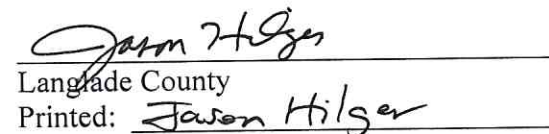 Jason Hilger
Langlade County
Printed: Jason Hilger